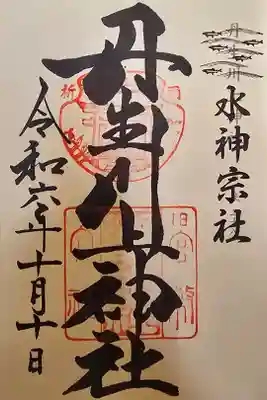 丹生川
水神宗社
丹生川上神社
令和六年十月十日